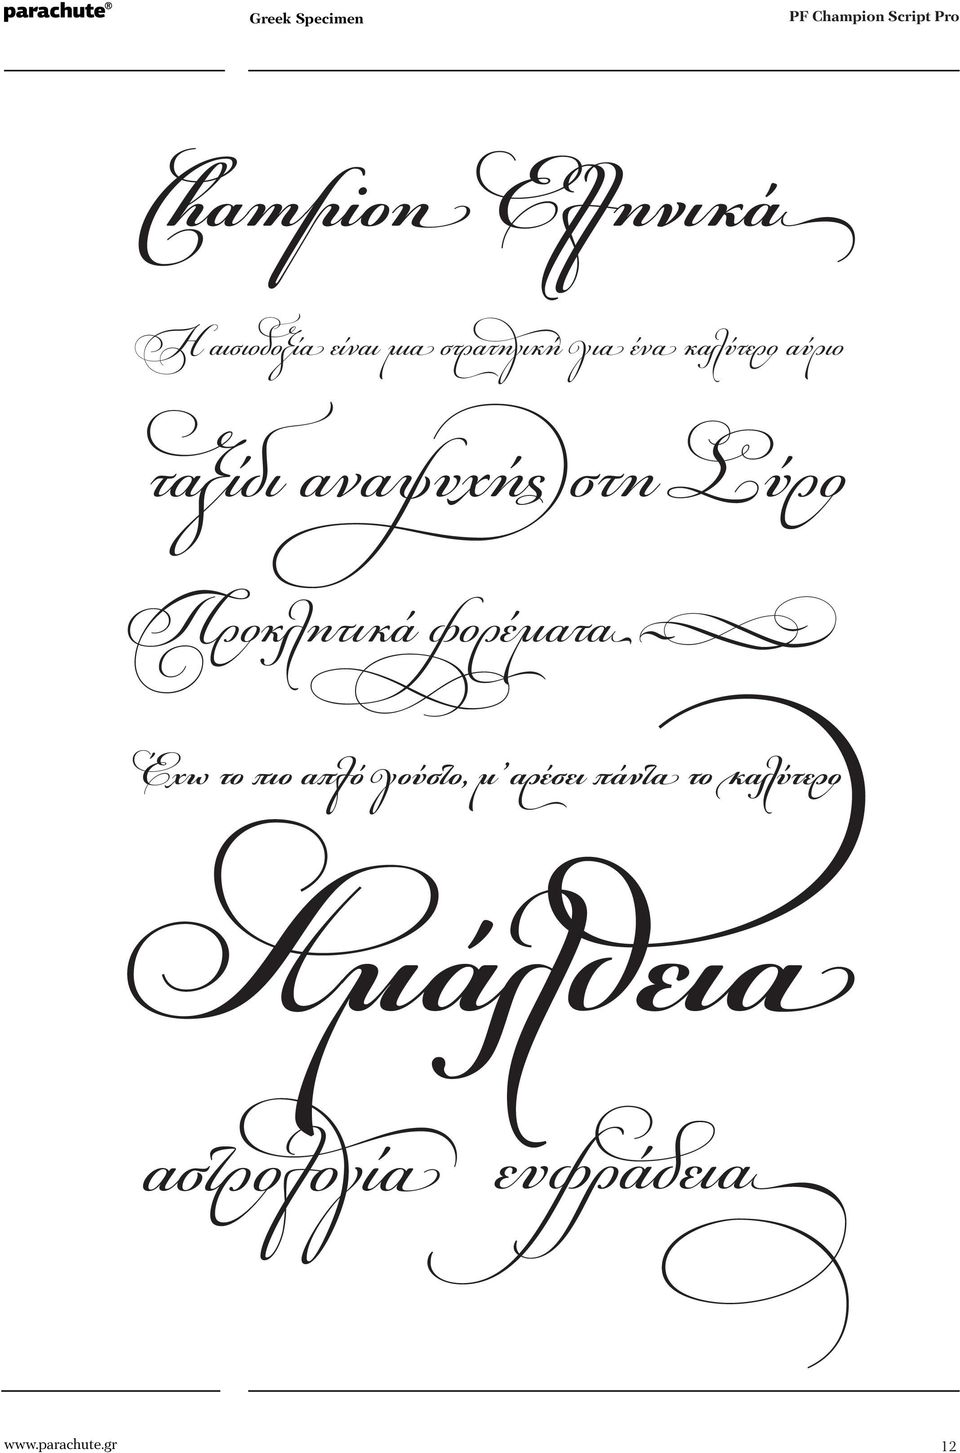 parachute®
Greek Specimen
PF Champion Script Pro
Champion Ελληνικά
Η αισιοδοξία είναι μια στρατηγική για ένα καλύτερο αύριο
ταξίδι αναψυχής στη Σύρο
Προκλητικά φορέματα
Έχω το πιο απλό γούστο, μ’ αρέσει πάντα το καλύτερο
Αμάλθεια
αστρολογία ευφράδεια
www.parachute.gr
12